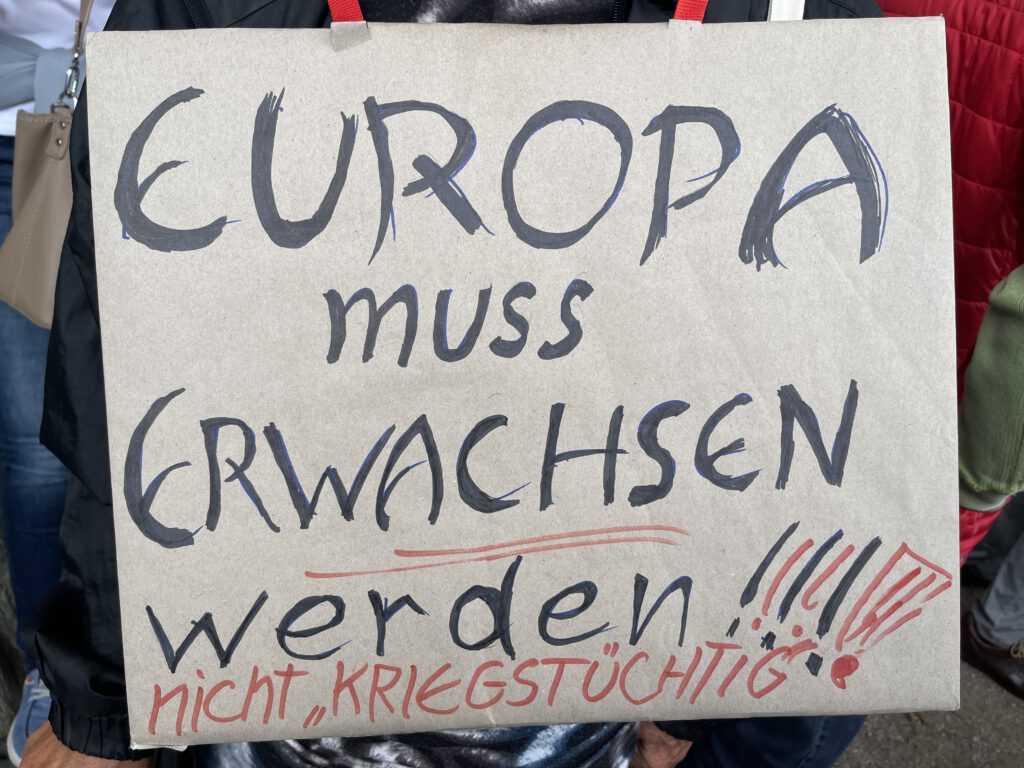 EUROPA
muss
ERWACHSEN
werden!!!!!!
nicht „KRIEGSTÜCHTIG“